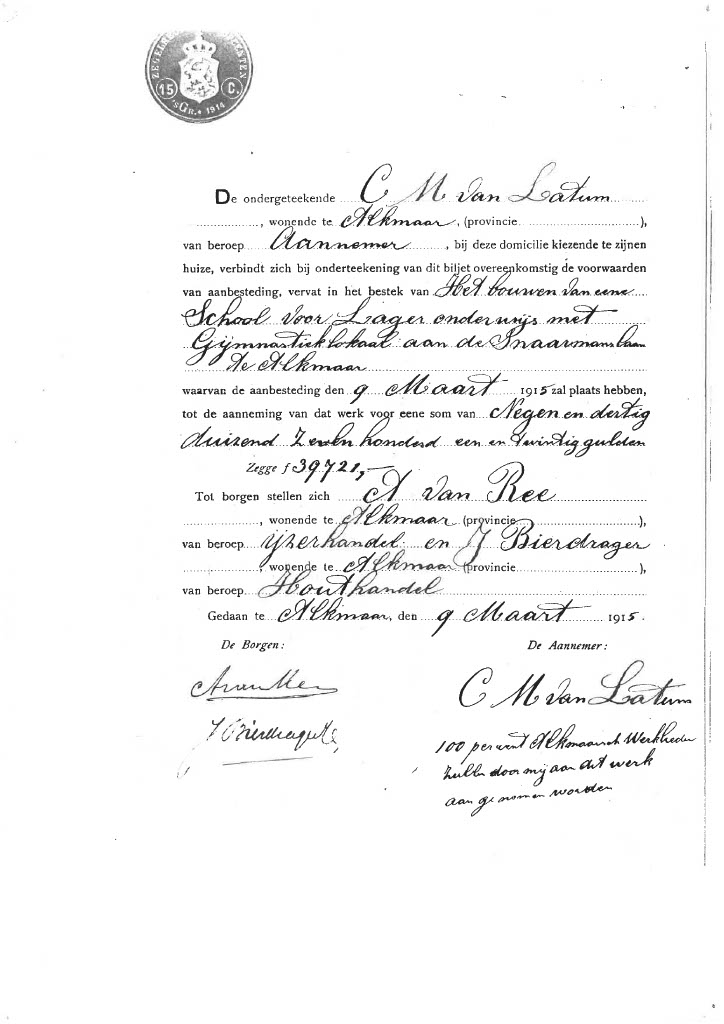 15 C.
'sGR. 1914
De ondergeteekende C M van Latum
, wonende te Alkmaar, (provincie ),
van beroep Aannemer, bij deze domicilie kiezende te zijnen
huize, verbindt zich bij onderteekening van dit biljet overeenkomstig de voorwaarden
van aanbesteding, vervat in het bestek van Het bouwen van eene
School voor Lager onderwijs met
Gijmnastieklokaal aan de Snaarmanslaan
te Alkmaar
waarvan de aanbesteding den 9 Maart 1915 zal plaats hebben,
tot de aanneming van dat werk voor eene som van Negen en dertig
duizend Zeven honderd een en twintig gulden
Zegge f 39721,-
Tot borgen stellen zich A van Ree
, wonende te Alkmaar (provincie ),
van beroep ijzerhandel en J Bierdrager
, wonende te Alkmaar (provincie ),
van beroep Houthandel
Gedaan te Alkmaar, den 9 Maart 1915.
De Borgen: De Aannemer:
C M van Latum
J Bierdrager
100 percent Alkmaarsch Werklieden
zullen door mij aan dit werk
aan genomen worden